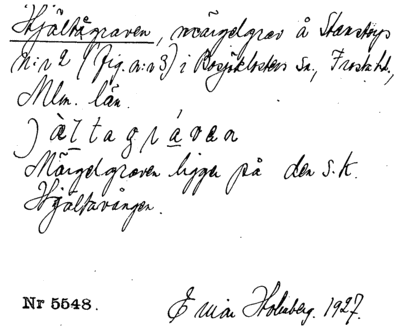 Hjältagraven, märgelgrav å Stanstorps
n:r 2 (fig. n:r 3) i Bosjöklosters sn, Frosta hd,
Mlm. län.
) à l t a g r á v e n
Märgelgraven ligger på den s.k.
Hjältavången.
Nr 5548. Einar Holmberg. 1927.